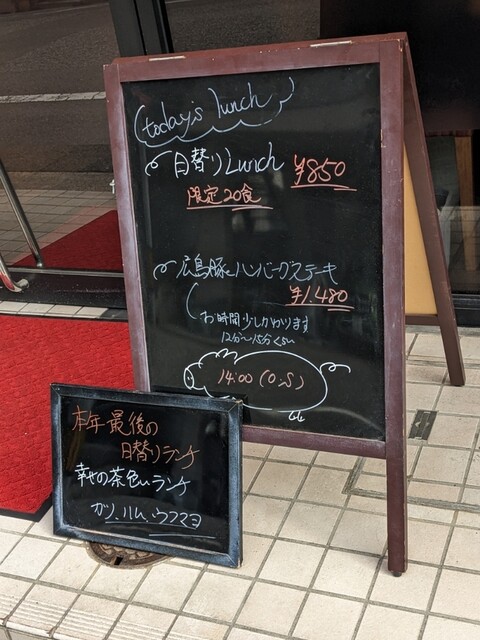 today's lunch
日替りLunch ¥850
限定20食
広島豚ハンバーグステーキ
¥1.480
お時間少しかかります
12分〜15分くらい
14:00 (O,S)
本年最後の
日替りランチ
幸せの茶色いランチ
カツ、ハム、ウフマヨ